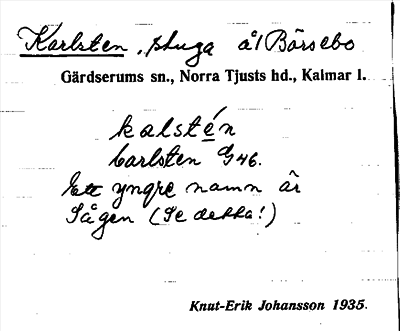 Karlsten, stuga å/ Börsebo
Gärdserums sn., Norra Tjusts hd., Kalmar l.
kalstén
Carlsten G46.
Ett yngre namn är
Sågen (Se detta!)
Knut-Erik Johansson 1935.